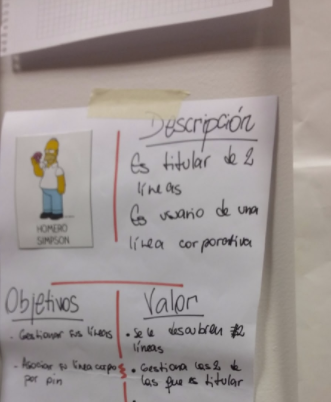 Descripción
Es titular de 2
líneas
Es usuario de una
línea corporativa
HOMERO
SIMPSON
Objetivos
- Gestionar sus líneas
- Asociar su línea corpo
por pin
Valor
• Se le descubren 2
líneas
• Gestiona las 2 de
las que es titular